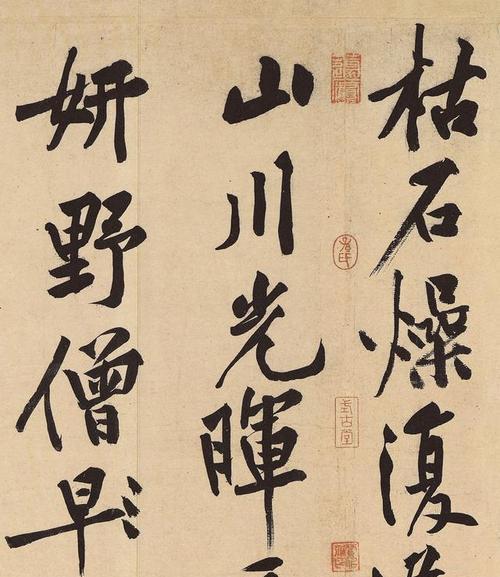 枯石燥復
山川光暉
妍野僧早
式古堂